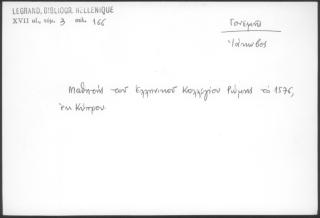 LEGRAND, BIBLIOGR. HELLENIQUE
XVII αἰ., τόμ. 3 σελ. 166
Ἰάκωβος
Μαθητής τοῦ Ἑλληνικοῦ Κολλεγίου Ρώμης τό 1576,
ἐκ Κύπρου.